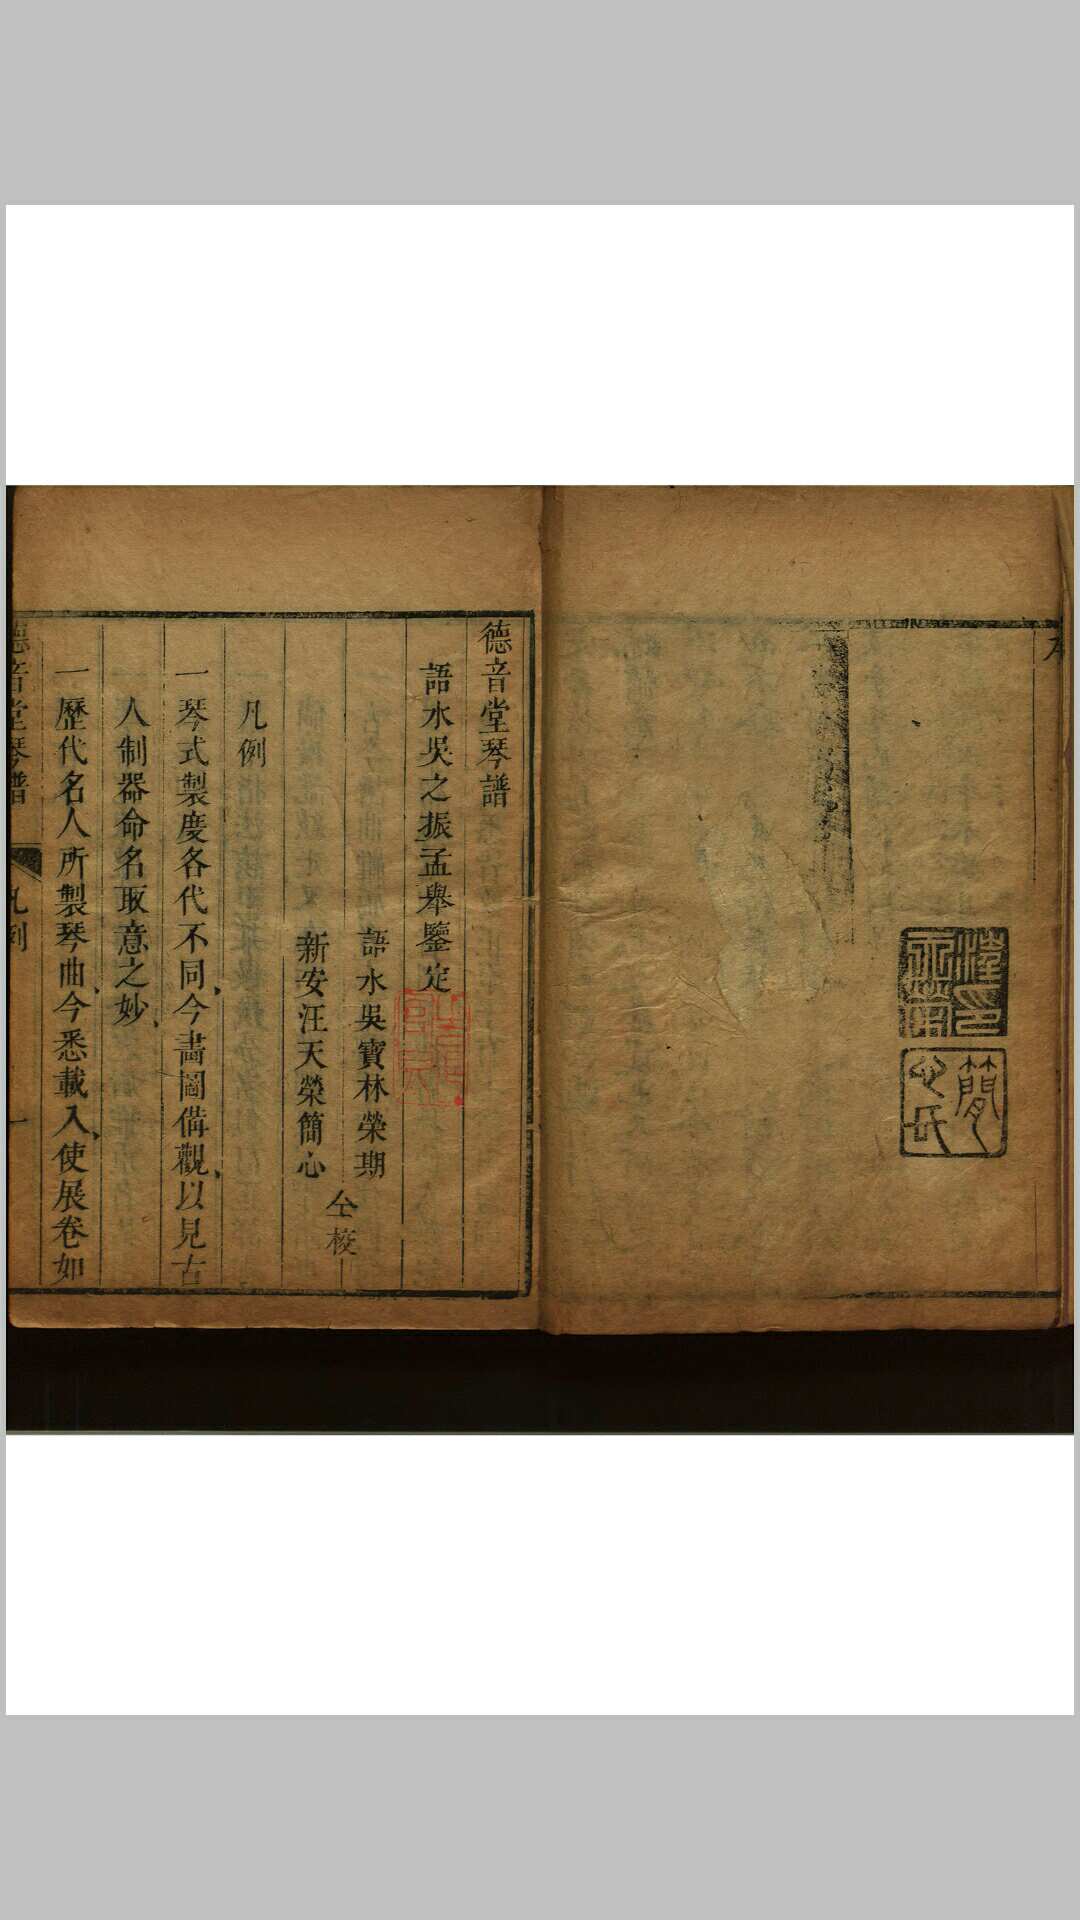 簡心氏
德音堂琴譜
語水吳之振孟舉鑒定
語水吳寶林榮期
新安汪天榮簡心
仝校
凡例
一琴式製度各代不同今畵圖俻觀以見古
人制器命名取意之妙
一歷代名人所製琴曲今悉載入使展卷如
德音堂琴譜
凡例
一